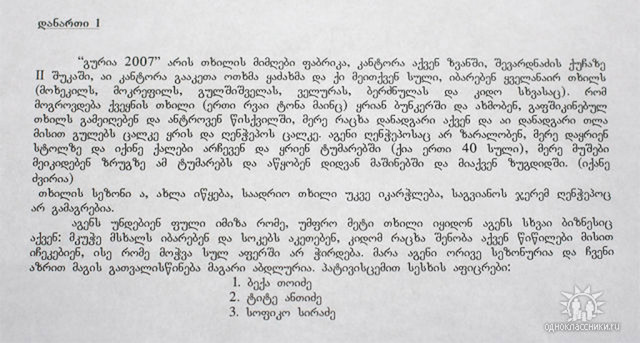 დანართი 1
“გურია 2007” არის თხილის მიმღები ფაბრიკა, კანტორა აქვენ ზვანში, შევარდნაძის ქუჩაზე
II შუკაში, აი კანტორა გააკეთა ოთხმა ყაძახმა და ქი მეითქვენ სული, იბარებენ ყველანაირ თხილს
(მოხეკილს, მოკრეფილს, გულშიშველას, ველურას, ბერძნულას და კიდო სხვასაც). რომ
მოგროვდება ქვეყნის თხილი (ერთი რვაი ტონა მაინც) ყრიან ბუნკერში და ახმობენ, გაფშიკინებულ
თხილს გამეილებენ და ანტროვენ წისქვილში, მერე რაცხა დანადგარი აქვენ და აი დანადგარი თლა
მისით გულებს ცალკე ყრის და ღენჭეპოს ცალკე. აგენი ღენჭეპოსაც არ ზარალობენ, მერე დაყრიენ
სტოლზე და იქინე ქალები არჩევენ და ყრიენ ტუმარებში (ქია ერთი 40 სული), მერე მუშები
მეიკიდებენ ზრუგზე ამ ტუმარებს და აწყობენ დიდვან მაშინებში და მიაქვენ ზუგდიდში. (იქანე
ძვირია)
თხილის სეზონი ა, ახლა იწყება, საადრიო თხილი უკვე იკარჭლება, საგვიანოს ჯერემ ღენჭეპოც
არ გამაგრებია.
აგენს უნდებიენ ფული იმიზა რომე, უმფრო მეტი თხილი იყიდონ აგენს სხვაი ბიზნესიც
აქვენ: მკუჭე მსხალს იბარებენ და სოკებს აკეთებენ, კიდომ რაცხა შენობა აქვენ წიწილები მისით
იჩეკებიენ, ისე რომე მოჭვა სულ აფერში არ ჭირდება. მარა აგენი ორივე სეზონურია და ჩვენი
აზრით მაგის გათვალისწინება მაგარი აბდლურია. პატივისცემით სესხის აფიცრები:
1. ბექა თოიძე
2. ტიტე ანთიძე
3. სოფიკო სირაძე
одноклассники.ru